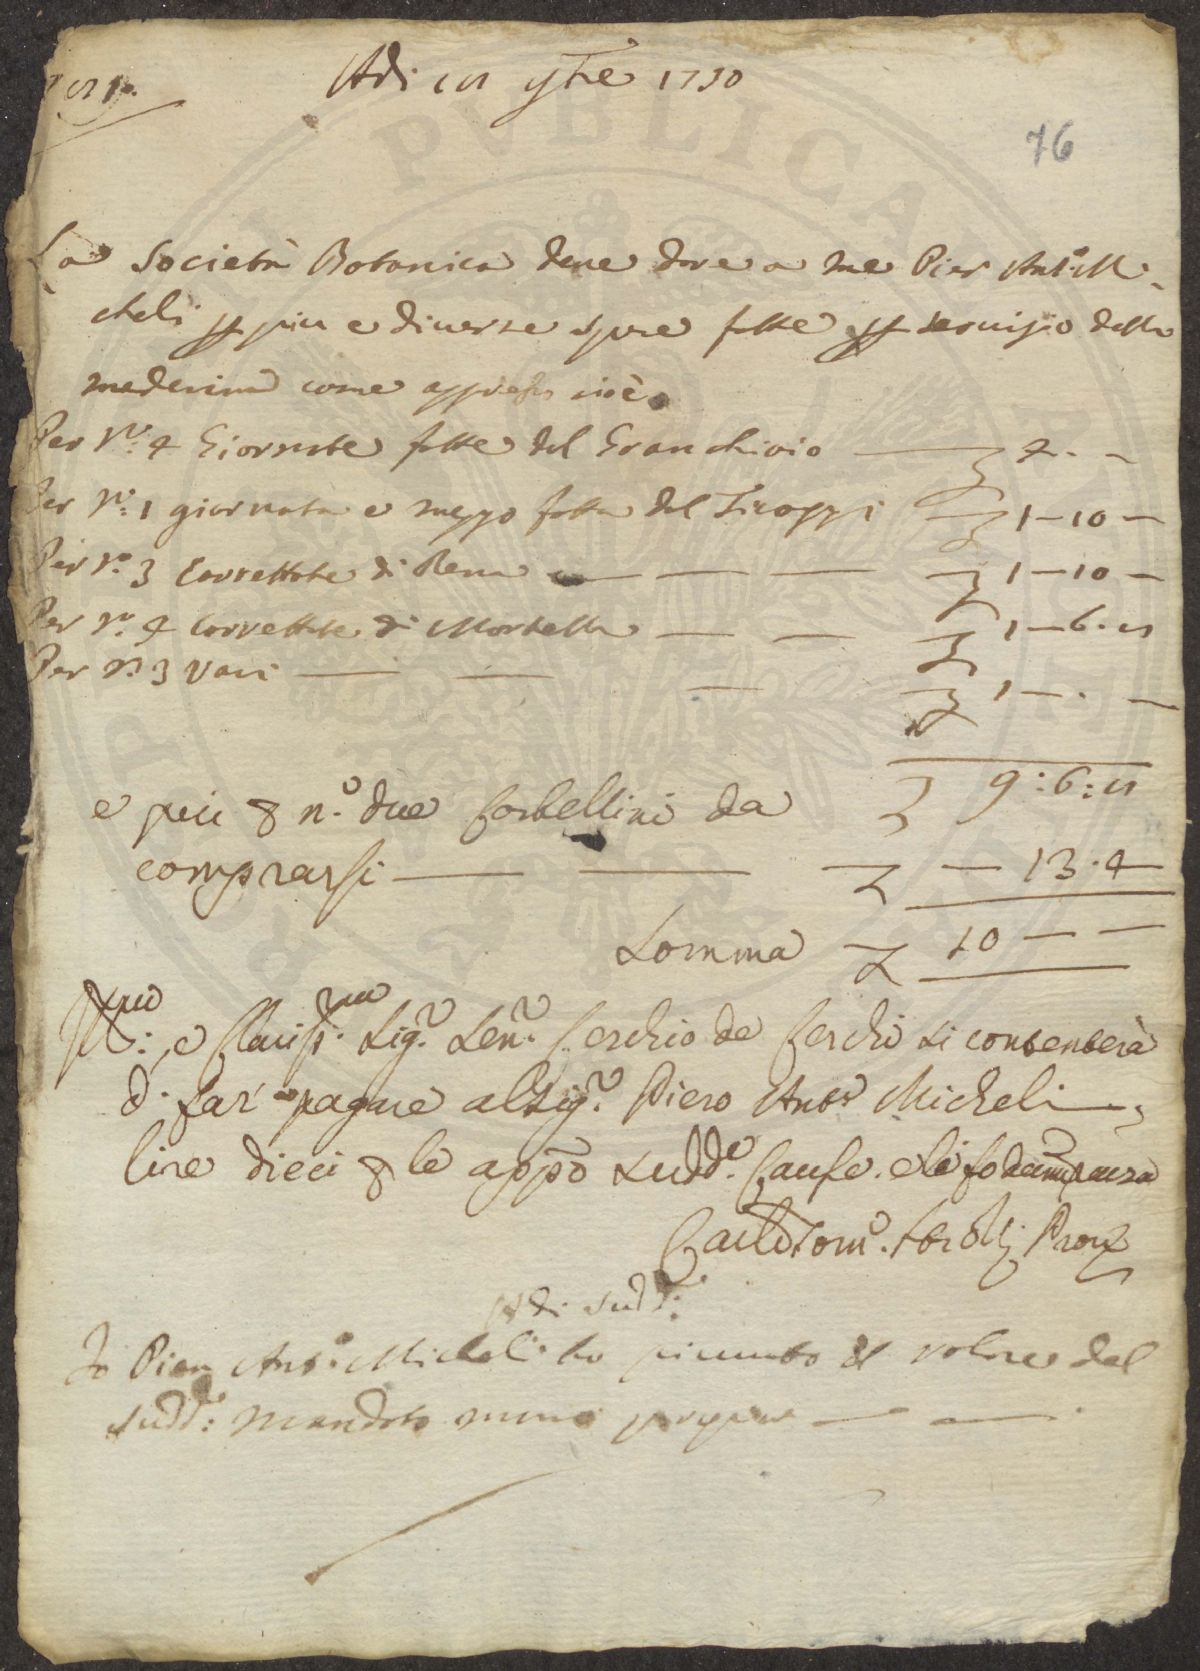 Adi 8 9bre 1730
76
La Società Botanica deve dare a me Pier Ant.o Mi
cheli p più e diverse spese fatte p servizio della
medesima come appresso cioè
Per n.o 4 Giornate fatte dal Granchivio — 4. –
Per n.o 1 giornata e mezzo fatta dal — 1 – 10 –
Per n.o 3 Carrettate di Rena — 1 – 10 –
Per n.o 4 Carrettate di Mortella — 1 – 6. 8
Per n.o 3 Vasi — 1 – . –
9 : 6 : 8
e piu p n.o due Corbellini da
comprarsi — 13. 4
Somma 10 — —
Ill.mo e Clariss.mo Sig.r Sen.r Cerchio de Cerchi si contenterà
di far pagare al Sig.r Piero Ant.o Micheli
lire dieci p le app.o sudd.e Cause. e li fo
Adi sudd.o
Io Pier Ant.o Micheli ho ricevuto il valore del
sudd.o Mandato mano propria